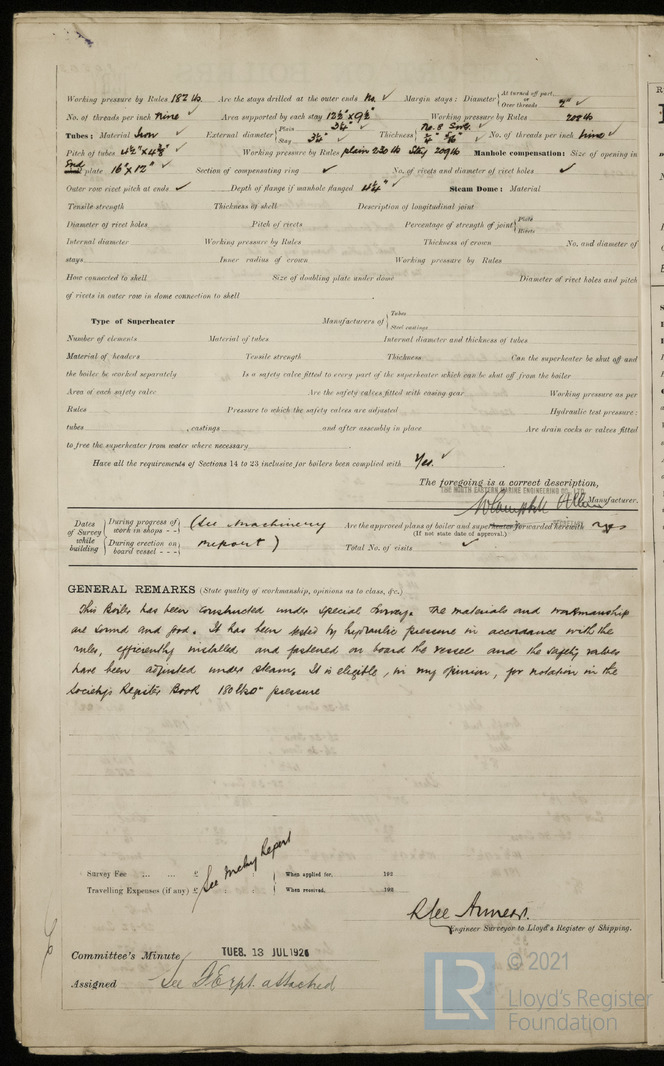 Working pressure by Rules 182 lb. Are the stays drilled at the outer ends No. ✓ Margin stays: Diameter { At turned off part, or Over threads 2" ✓
No. of threads per inch Nine ✓ Area supported by each stay 12½" x 9½" Working pressure by Rules 202 lb
Tubes: Material Iron ✓ External diameter { Plain 3¼" Stay 3¼" ✓ Thickness { No. 8 5/16" ✓ No. of threads per inch nine ✓
Pitch of tubes 4½" x 4⅜" ✓ Working pressure by Rules plain 230 lb Stay 209 lb Manhole compensation: Size of opening in
End plate 16" x 12" ✓ Section of compensating ring ✓ No. of rivets and diameter of rivet holes ✓
Outer row rivet pitch at ends ✓ Depth of flange if manhole flanged ✓ Steam Dome: Material
Tensile strength Thickness of shell Description of longitudinal joint
Diameter of rivet holes Pitch of rivets Percentage of strength of joint { Plate Rivets
Internal diameter Working pressure by Rules Thickness of crown No. and diameter of
stays Inner radius of crown Working pressure by Rules
How connected to shell Size of doubling plate under dome Diameter of rivet holes and pitch
of rivets in outer row in dome connection to shell
Type of Superheater Manufacturers of { Tubes Steel castings
Number of elements Material of tubes Internal diameter and thickness of tubes
Material of headers Tensile strength Thickness Can the superheater be shut off and
the boiler be worked separately Is a safety valve fitted to every part of the superheater which can be shut off from the boiler
Area of each safety valve Are the safety valves fitted with easing gear Working pressure as per
Rules Pressure to which the safety valves are adjusted Hydraulic test pressure:
tubes , castings and after assembly in place Are drain cocks or valves fitted
to free the superheater from water where necessary
Have all the requirements of Sections 14 to 23 inclusive for boilers been complied with Yes. ✓
The foregoing is a correct description,
THE NORTH EASTERN MARINE ENGINEERING CO. LTD.
Manufacturer.
Dates of Survey while building { During progress of work in shops - - (See Machinery Are the approved plans of boiler and superheater forwarded herewith
(If not state date of approval.)
During erection on board vessel - - report) Total No. of visits ✓
GENERAL REMARKS (State quality of workmanship, opinions as to class, &c.)
This Boiler has been constructed under special survey. The materials and workmanship
are sound and good. It has been tested by hydraulic pressure in accordance with the
rules, efficiently installed and fastened on board the vessel and the safety valves
have been adjusted under steam. It is eligible, in my opinion, for notation in the
Society's Register Book 180 lbs□" pressure
Survey Fee ... ... £ See Mchy Report When applied for, 192
Travelling Expenses (if any) £ : : When received, 192
Engineer Surveyor to Lloyd's Register of Shipping.
Committee's Minute TUES. 13 JUL 1926
Assigned See attached
LR © 2021
Lloyd's Register
Foundation